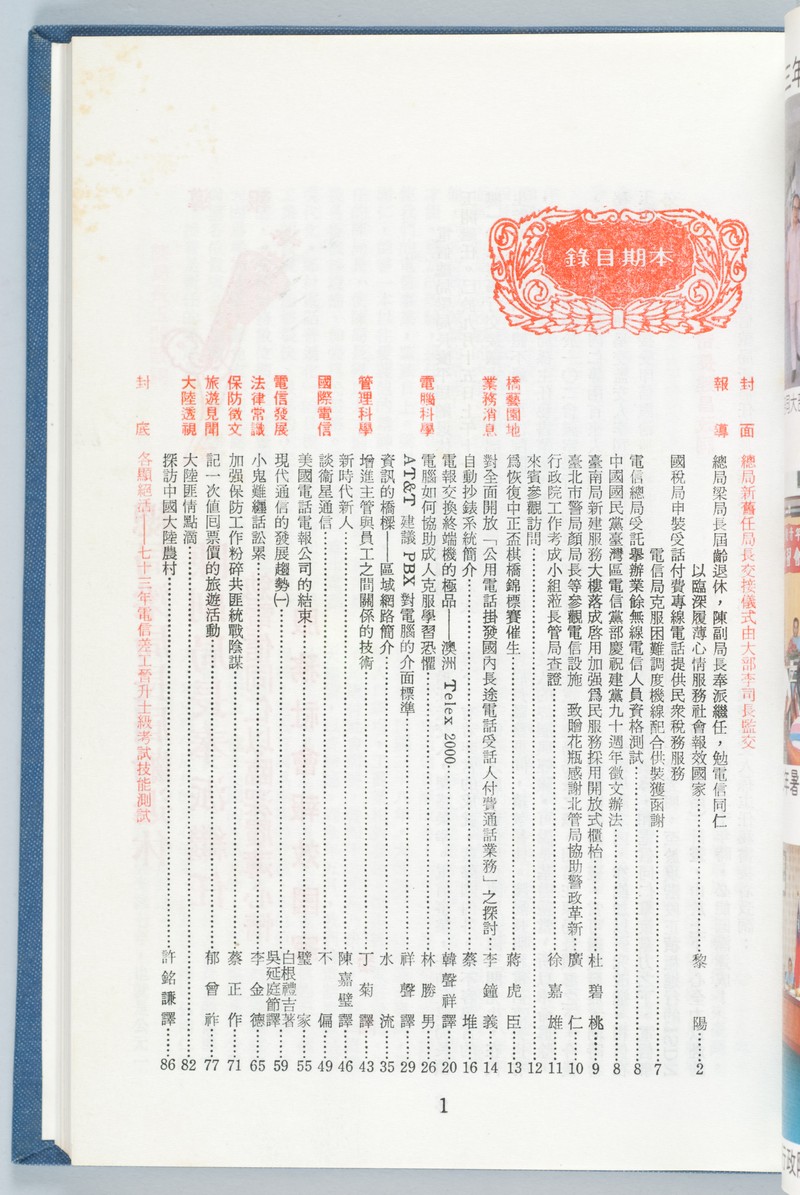 本期目錄
封面 總局新舊任局長交接儀式由大部李司長監交
報導 總局梁局長屆齡退休，陳副局長奉派繼任，勉電信同仁
以臨深履薄心情服務社會報效國家 黎陽 2
國稅局申裝受話付費專線電話提供民衆稅務服務
電信局克服困難調度機線配合供裝獲函謝 7
電信總局受託舉辦業餘無線電信人員資格測試 8
中國國民黨臺灣區電信黨部慶祝建黨九十週年徵文辦法 8
臺南局新建服務大樓落成啓用加强爲民服務採用開放式櫃枱 杜碧桃 9
臺北市警局顏局長等參觀電信設施 致贈花瓶感謝北管局協助警政革新 廣仁 10
行政院工作考成小組蒞長管局查證 徐嘉雄 11
來賓參觀訪問 12
橋藝園地 爲恢復中正盃棋橋錦標賽催生 蔣虎臣 13
業務消息 對全面開放「公用電話掛發國內長途電話受話人付費通話業務」之探討 李鐘義 14
自動抄錶系統簡介 蔡堆 16
電報交換終端機的極品——澳洲 Telex 2000 韓聲祥譯 20
電腦科學 電腦如何協助成人克服學習恐懼 林勝男 26
AT&T 建議 PBX 對電腦的介面標準 祥聲譯 29
資訊的橋樑——區域網路簡介 水流 35
管理科學 增進主管與員工之間關係的技術 丁菊譯 43
新時代新人 陳嘉璧譯 46
國際電信 談衞星通信 不偏 49
美國電話電報公司的結束 璧家 55
電信發展 現代通信的發展趨勢㈠ 白根禮吉著 吳延庭節譯 59
法律常識 小鬼難纏話訟累 李金德 65
保防徵文 加强保防工作粉碎共匪統戰陰謀 蔡正作 71
旅遊見聞 記一次値囘票價的旅遊活動 郁曾祚 77
大陸透視 大陸匪情點滴 82
探訪中國大陸農村 許銘謙譯 86
封底 各顯絕活——七十三年電信差工晉升士級考試技能測試
1